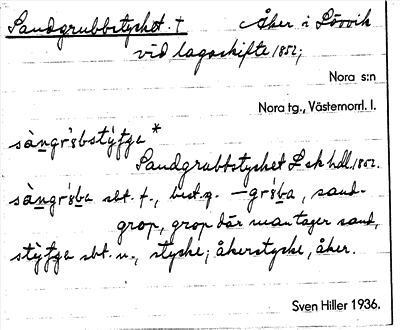 Sandgrubbstycket. † Åker i Lövvik
vid lagaskifte 1852;
Nora s:n
Nora tg., Västernorrl. l.
*
Sandgrubbstycket L sk hdl. 1852.
sbt. f., best. f. sand-
grop, grop där man tager sand,
sbt. n., stycke; åkerstycke, åker.
Sven Hiller 1936.